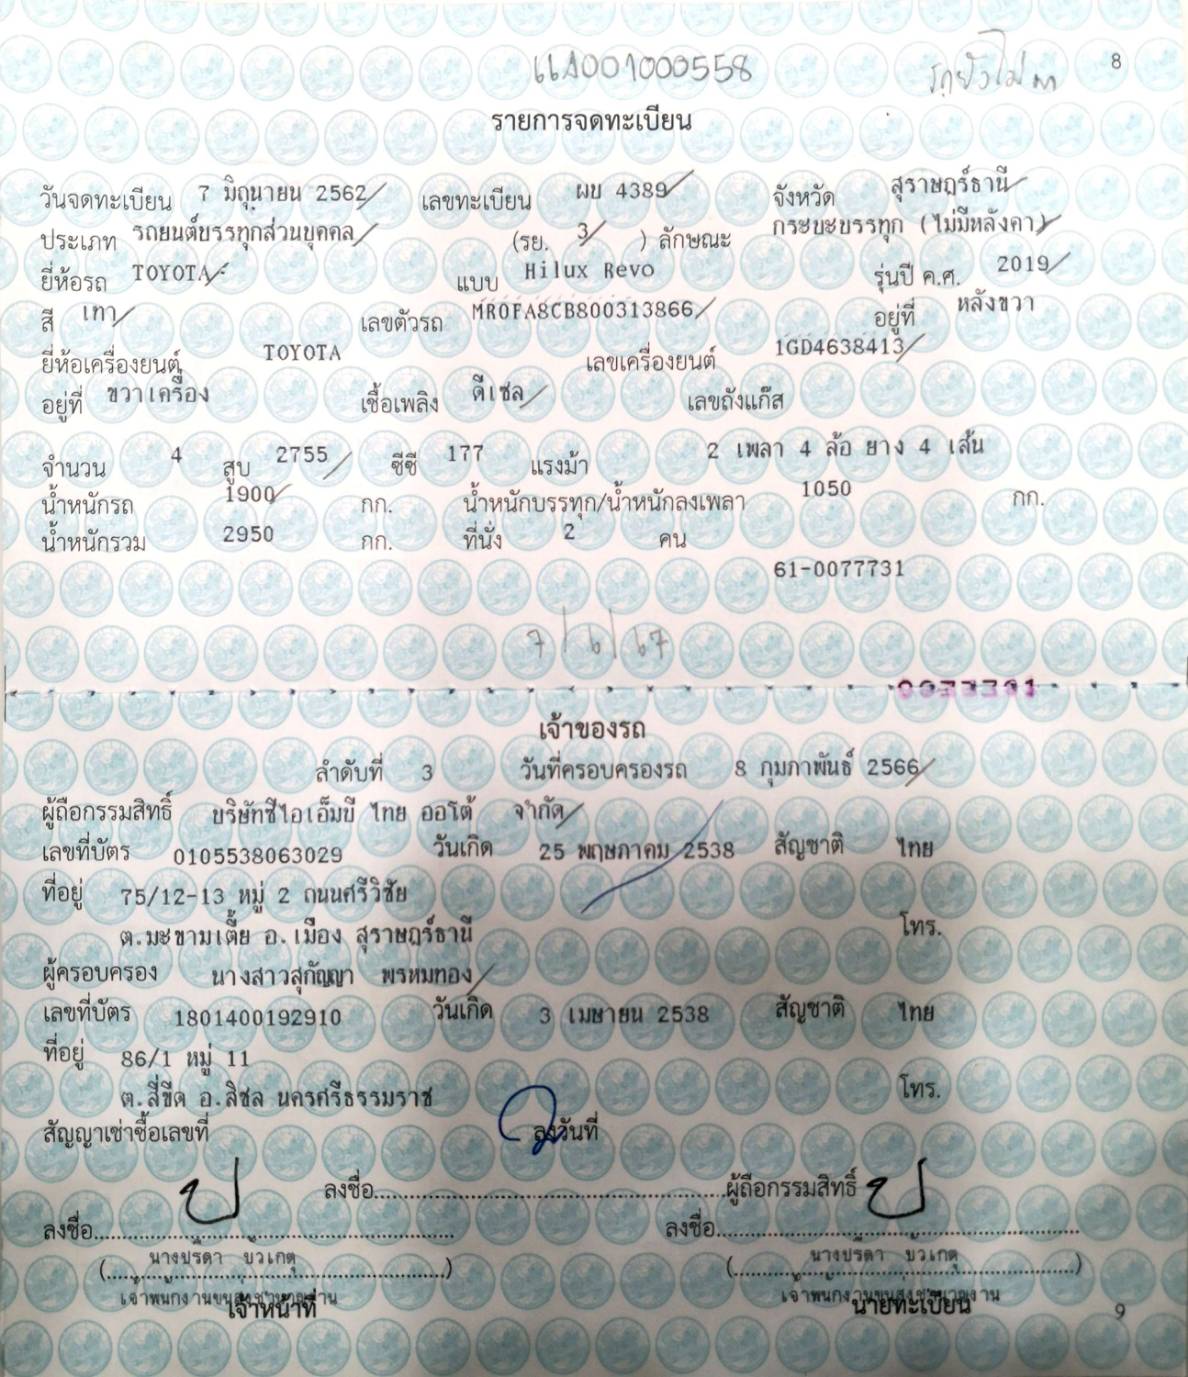 66A001000558
8
รายการจดทะเบียน
วันจดทะเบียน 7 มิถุนายน 2562 เลขทะเบียน ผบ 4389 จังหวัด สุราษฎร์ธานี
ประเภท รถยนต์บรรทุกส่วนบุคคล (รย. 3 ) ลักษณะ กระบะบรรทุก (ไม่มีหลังคา)
ยี่ห้อรถ TOYOTA แบบ Hilux Revo รุ่นปี ค.ศ. 2019
สี เทา เลขตัวรถ MR0FA8CB800313866 อยู่ที่ หลังขวา
ยี่ห้อเครื่องยนต์ TOYOTA เลขเครื่องยนต์ 1GD4638413
อยู่ที่ ขวาเครื่อง เชื้อเพลิง ดีเซล เลขถังแก๊ส
จำนวน 4 สูบ 2755 ซีซี 177 แรงม้า 2 เพลา 4 ล้อ ยาง 4 เส้น
น้ำหนักรถ 1900 กก. น้ำหนักบรรทุก/น้ำหนักลงเพลา 1050 กก.
น้ำหนักรวม 2950 กก. ที่นั่ง 2 คน
61-0077731
7/6/67
เจ้าของรถ
ลำดับที่ 3 วันที่ครอบครองรถ 8 กุมภาพันธ์ 2566
ผู้ถือกรรมสิทธิ์ บริษัทซีไอเอ็มบี ไทย ออโต้ จำกัด
เลขที่บัตร 0105538063029 วันเกิด 25 พฤษภาคม 2538 สัญชาติ ไทย
ที่อยู่ 75/12-13 หมู่ 2 ถนนศรีวิชัย
ต.มะขามเตี้ย อ.เมือง สุราษฎร์ธานี โทร.
ผู้ครอบครอง นางสาวสุกัญญา พรหมทอง
เลขที่บัตร 1801400192910 วันเกิด 3 เมษายน 2538 สัญชาติ ไทย
ที่อยู่ 86/1 หมู่ 11
ต.สี่ขีด อ.สิชล นครศรีธรรมราช โทร.
สัญญาเช่าซื้อเลขที่ ลงวันที่
ลงชื่อ ผู้ถือกรรมสิทธิ์
ลงชื่อ ลงชื่อ
(นางปรีดา บัวเกตุ) (นางปรีดา บัวเกตุ)
เจ้าพนักงานขนส่งชำนาญงาน เจ้าพนักงานขนส่งชำนาญงาน
เจ้าหน้าที่ นายทะเบียน
9